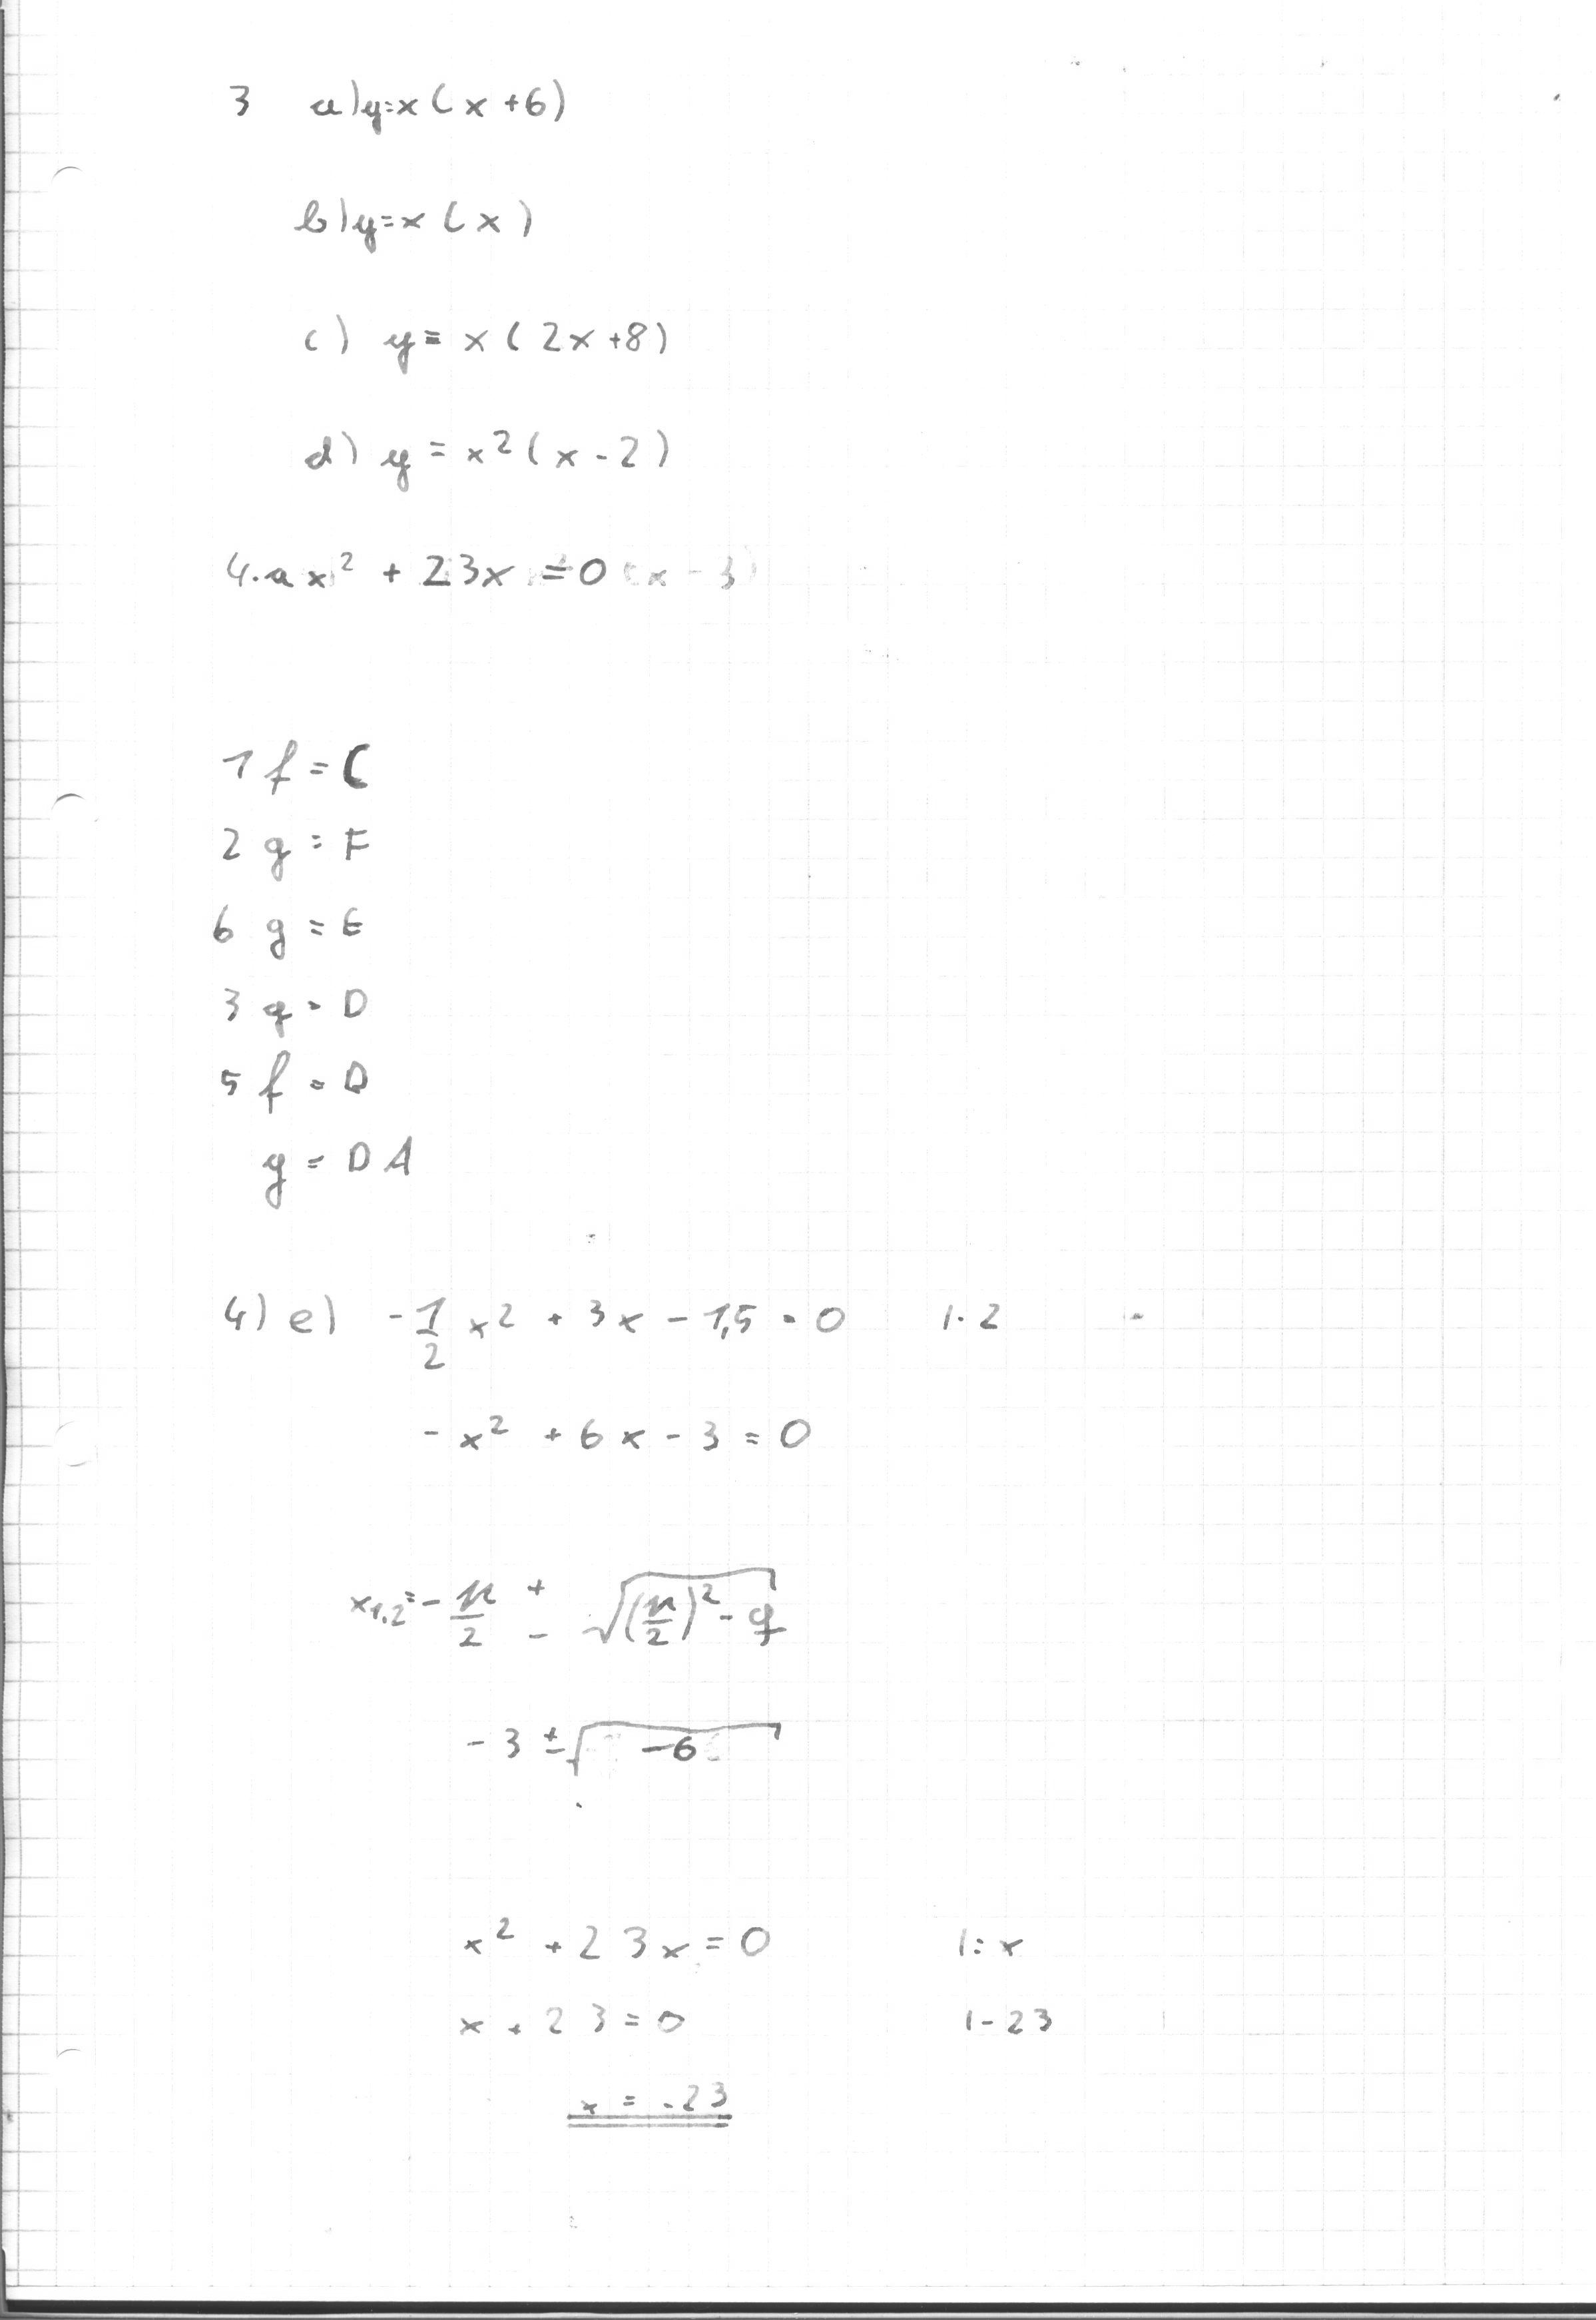 3 a) y=x(x+6)
b) y=x(x)
c) y = x(2x+8)
d) y = x²(x-2)
4. a x² + 23x = 0 (x - 3)
1 f = C
2 g = F
6 g = E
3 g = D
5 f = D
g = D A
4) e) -1/2 x² + 3x - 1,5 = 0 |·2
-x² + 6x - 3 = 0
x₁,₂ = - p/2 ± √((p/2)² - q)
-3 ± √-6
x² + 23x = 0 |:x
x + 23 = 0 |-23
x = -23